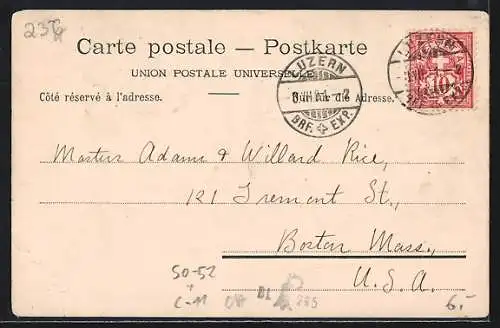 236
Carte postale — Postkarte
UNION POSTALE UNIVERSELLE
Côté réservé à l'adresse.
Nur für die Adresse.
LUZERN
BRF. EXP.
LUZERN
10
Masters Adams & Willard Rice,
121 Tremont St.,
Boston Mass.,
U.S.A.
50-52
C-11
B1
265
6.-